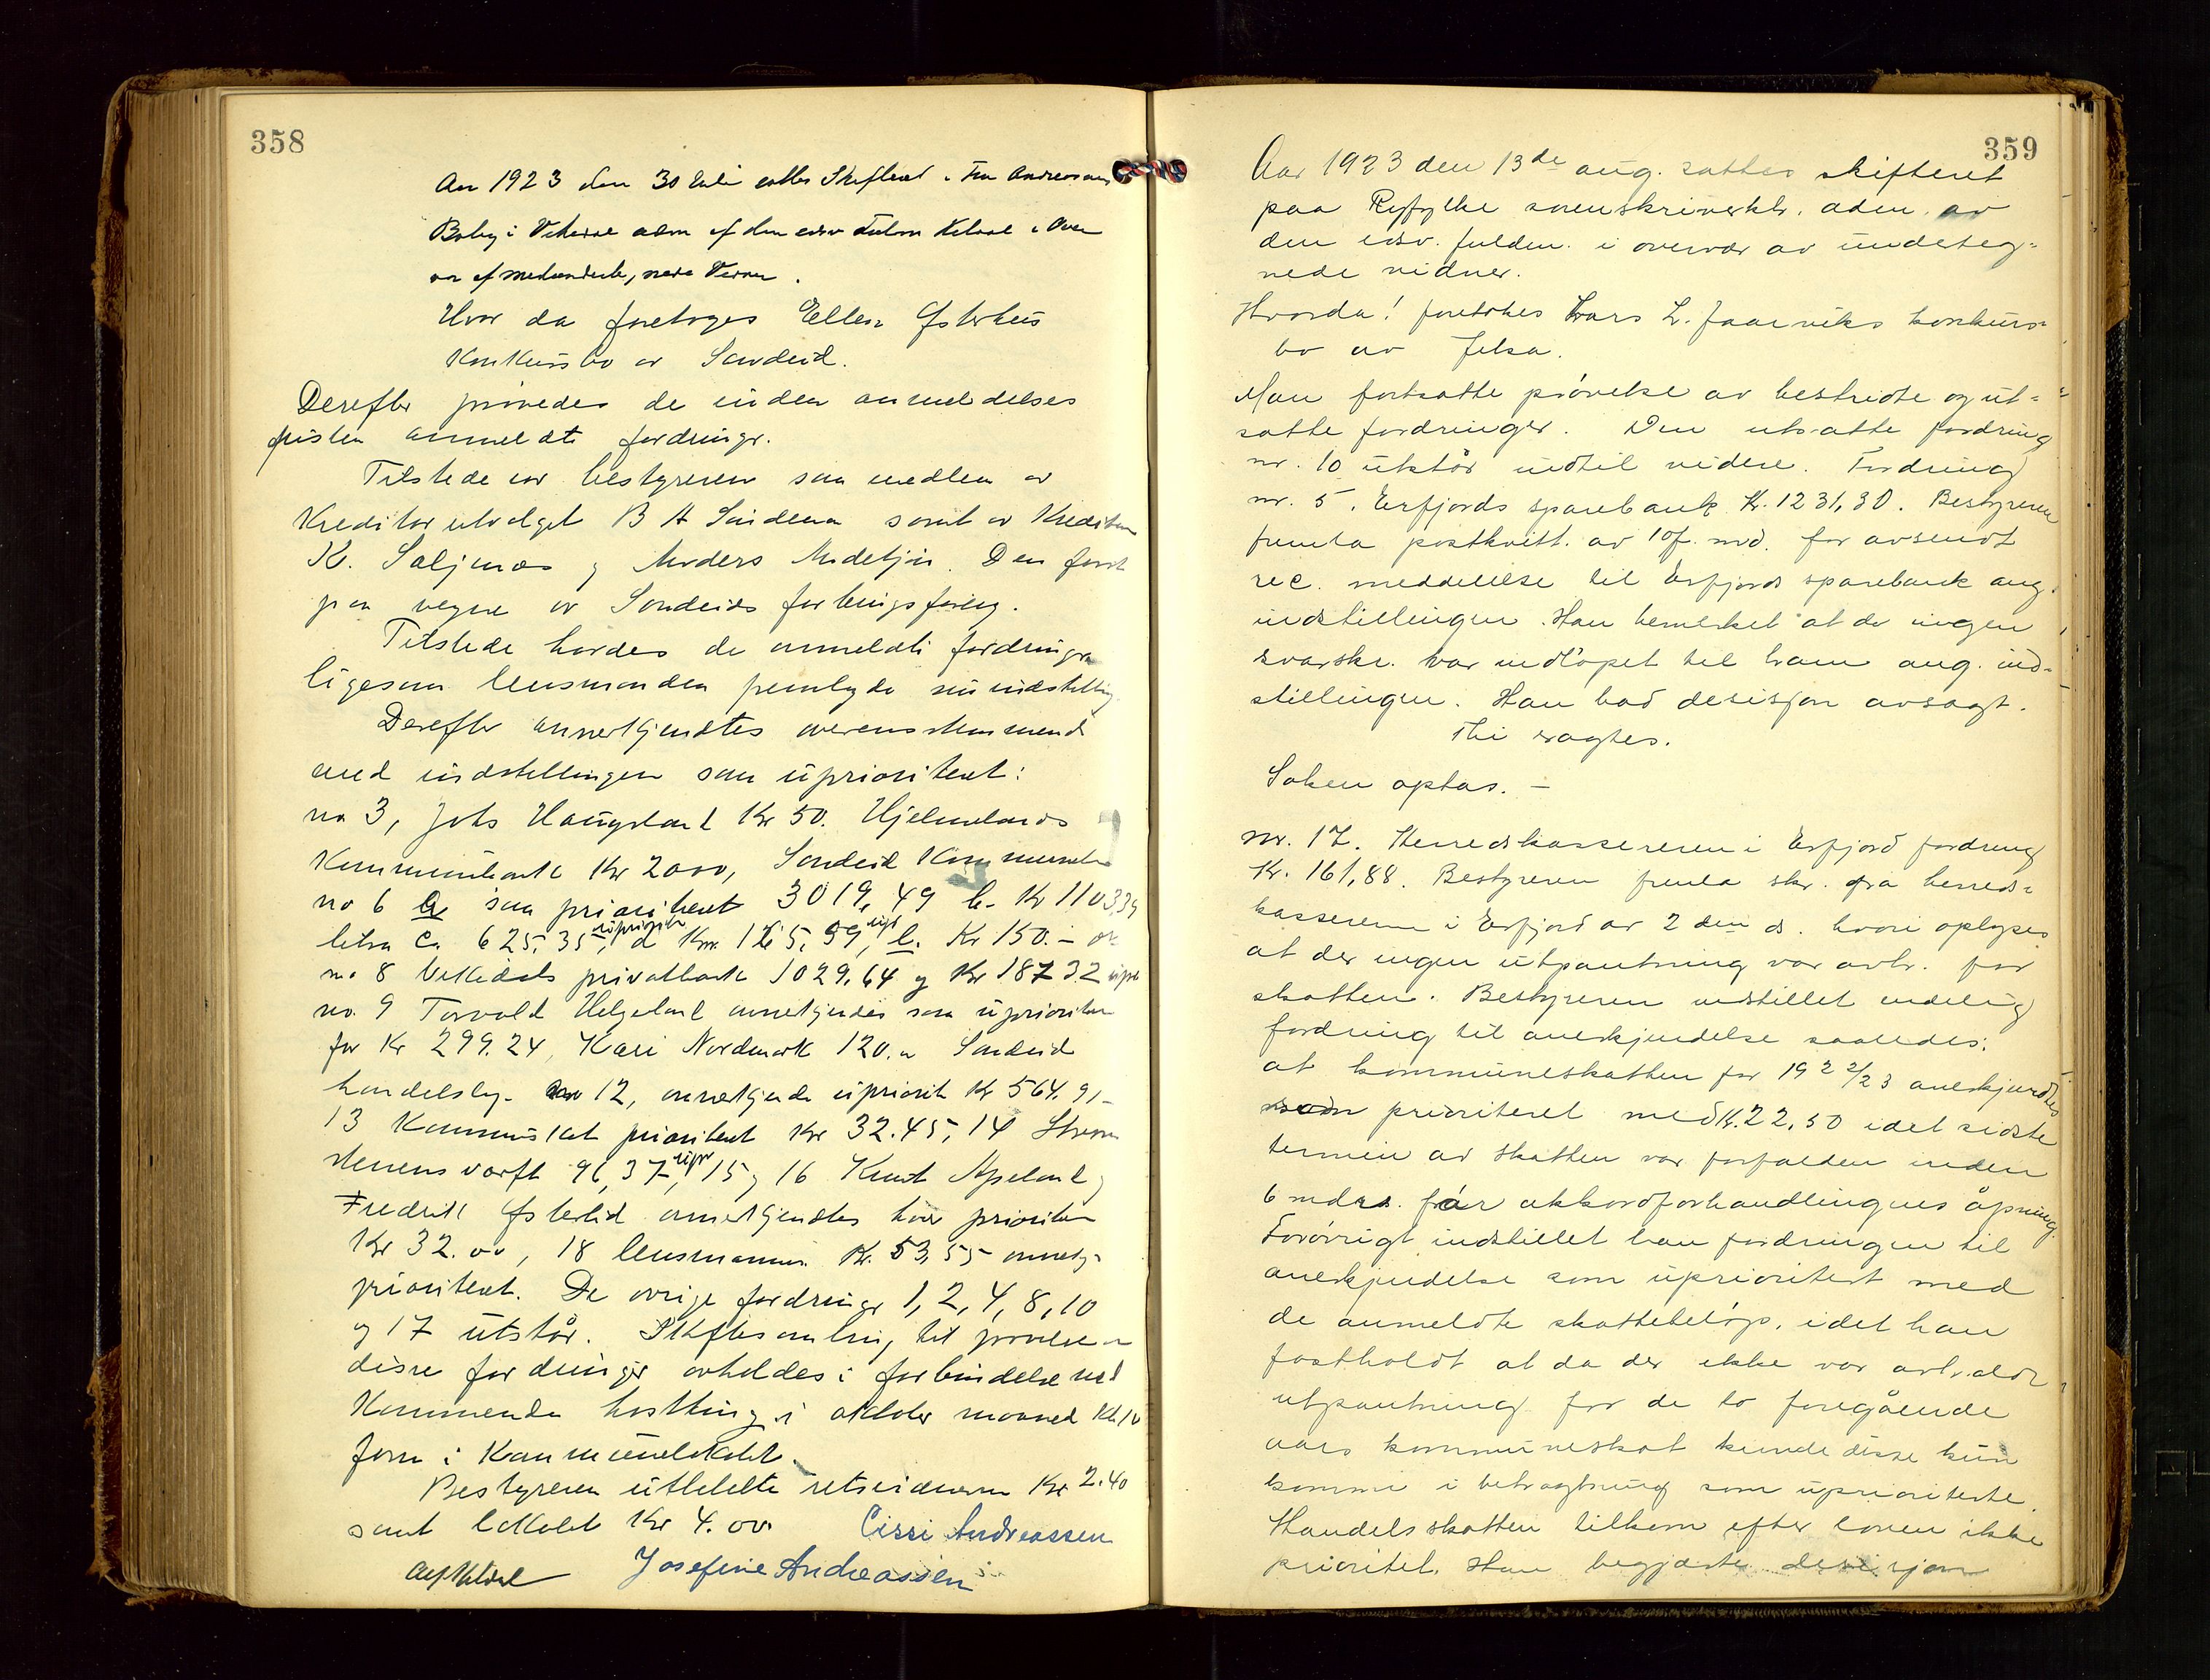 358
Aar 1923 den 30 Juli sattes Skifteret i Fru Andreassens
Bolig i Vikedal adm af den edsv Fuldm Kildal i Over
vær af medundertegnede Vidner.
Hvor da foretoges Ellen Østerhus
Konkursbo av Sandeid.
Derefter prøvedes de inden anmeldelses
fristen anmeldte fordringer.
Tilstede var bestyreren som medlem av
Kreditorutvalget B A Sandeen samt av Kreditorer
K. Saljenæs og Anders Midetjis. Den først
paa vegne av Sandeids forbrugsforeg.
Tilstede havdes de anmeldte fordringer
ligesom lensmanden fremlagde sin indstilling
Derefter annerkjendtes overensstemmende
med indstillingen som uprioritert:
no 3, Johs Haugeland Kr 50. Hjelmelands
Kommunebank Kr 2000, Sandeid Kommune
no 6 a som prioritert 3019,49 b. Kr 1103,39
litra c. 625,35 upriorit, d Kr. 165,59 upr, e. Kr 150.- ok
no 8 Vikedals privatbank 1029,64 og Kr 187 32 upr
no. 9 Torvald Helgeland annerkjendes som uprioriter
for Kr 299.24, Kari Nordmark 120.- Sandeid
handelslag no 12, annerkjende upriorit Kr 564,91
13 Kommuneskat prioritert Kr 32.45, 14 Strøm
stenens værft 96,37 upr, 15 og 16 Knut Apeland og
Fredrik Østerlid annerkjendtes hver prioriter
Kr 32.00, 18 lensmannen Kr. 53,55 annerkj-
prioritert. De øvrige fordringer 1, 2, 4, 8, 10
og 17 utstår. Skiftesamling til prøvelse av
disse fordringer avholdes i forbindelse med
Kommende høstting i oktober maaned Kl 10
form i Kommunelokalet.
Bestyreren utbetalte retsvidnerne Kr 2.40
samt lokalet Kr 4.00. Cissi Andreassen
Alf Kildal Josefine Andreassen
359
Aar 1923 den 13de aug. sattes skifteret
paa Ryfylke sorenskriverktr. adm. av
den edsv. fuldm. i overvær av undeteg=
nede vidner.
Hvorda! foretokes Lars L. Jaarviks konkurs=
bo av Jelsa.
Man fortsatte prøvelse av bestridte og ut=
satte fordringer. Den utsatte fordring
nr. 10 utstår indtil videre. Fordring
nr. 5. Erfjords sparebank Kr. 1231,30. Bestyreren
fremla postkvitt. av 10f. md. for avsendt
rec. meddelelse til Erfjords sparebank ang.
indstillingen. Han bemerket at da ingen
svarskr. var indløpet til ham ang. ind-
stillingen. Han bad desisjon avsagt.
Thi sagtes.
Saken optas. —
Nr. 17. Herredskassereren i Erfjord fordring
Kr. 161,88. Bestyreren fremla skr. fra herreds=
kassereren i Erfjord av 2 den ds. hvori oplyses
at der ingen utpantning var avh. for
skatten. Bestyreren indstillet endelig
fordring til anerkjendelse saaledes:
at kommuneskatten for 1922/23 anerkjendtes
som prioriteret med Kr. 22,50 idet sidste
termin av skatten var forfalden inden
6 mdrs. før akkordforhandlingnes åpning.
Forøvrigt indstillet han fordringen til
anerkjendelse som uprioritert med
de anmeldte skattebeløp, idet han
fastholdt at da der ikke var avholdt
utpantning for de to foregående
aars kommuneskat kunde disse kun
komme i betragtning som uprioriterte.
Handelsskatten tilkom efter loven ikke
prioritet. Han begjærte desisjon